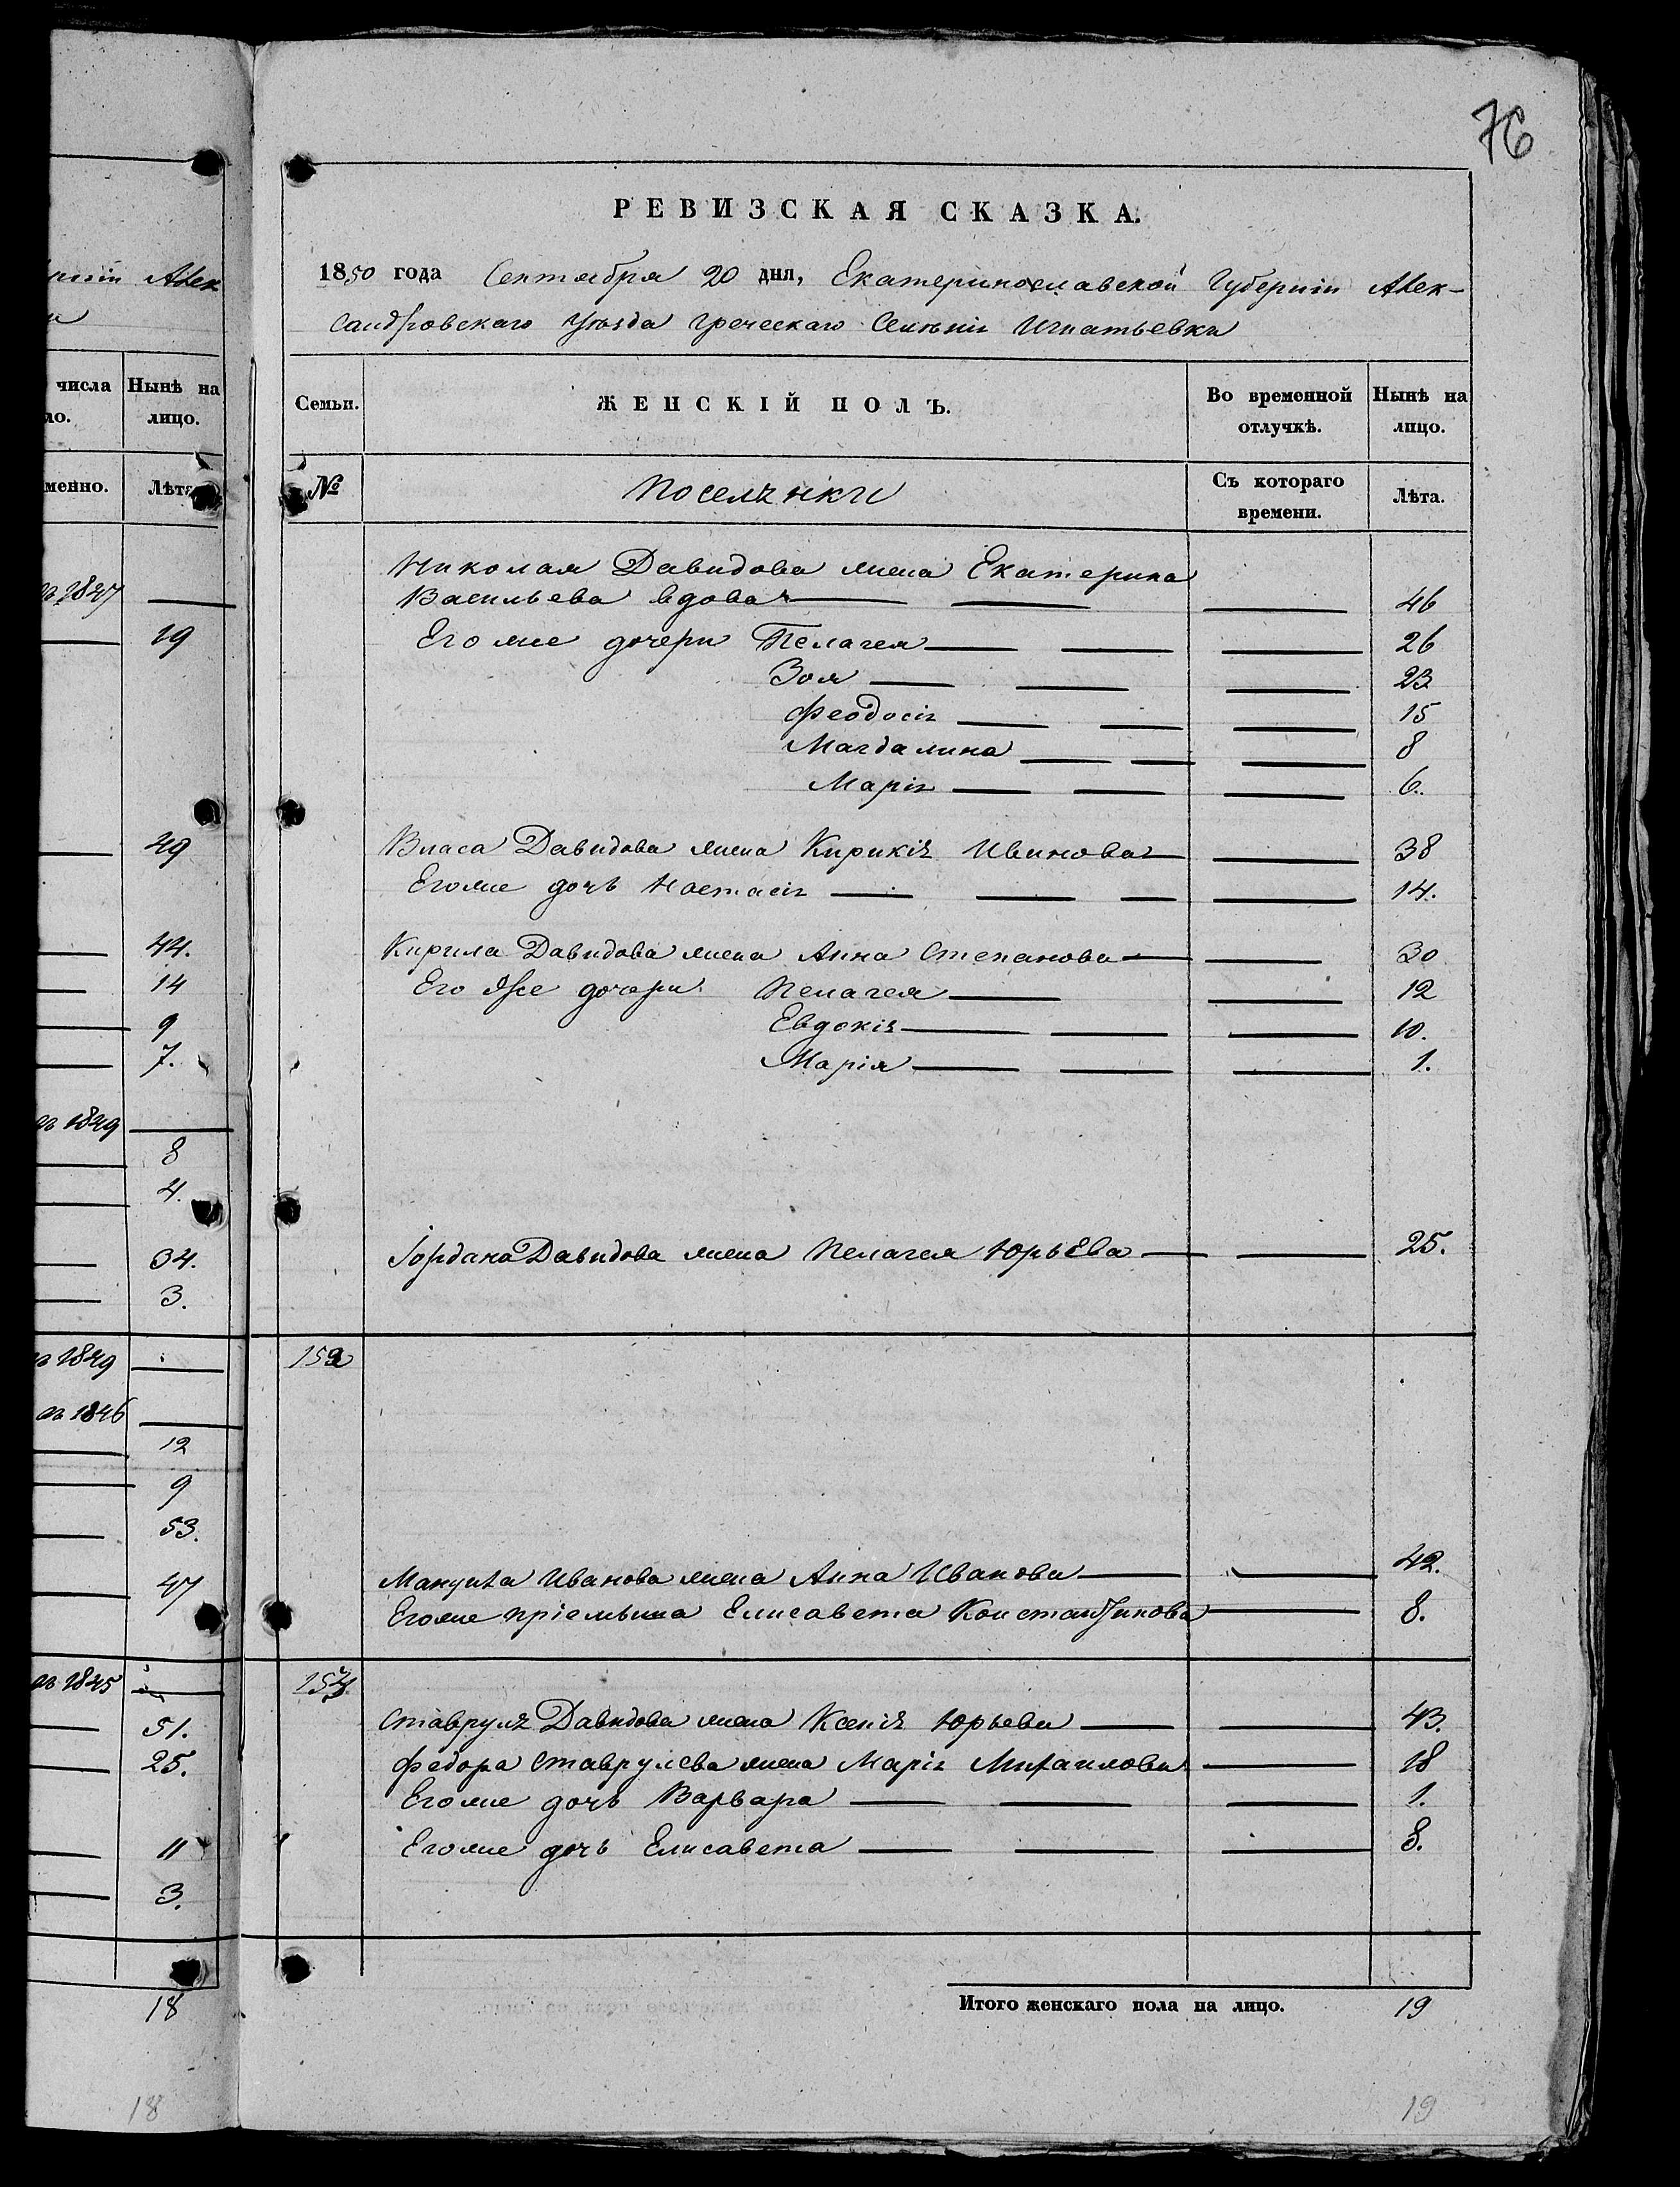 76
РЕВИЗСКАЯ СКАЗКА.
1850 года Сентября 20 дня, Екатеринославской Губерніи Алек-
сандровскаго Уѣзда Греческаго Селѣнія Игнатьевки
Семьи. ЖЕНСКІЙ ПОЛЪ. Во временной отлучкѣ. Нынѣ на лицо.
№ Поселянки Съ котораго времени. Лѣта.
Николая Давидова жена Екатерина
Васильева вдова 46
Его же дочери Пелагея 26
Зоя 23
Феодосія 15
Магдалина 8
Марія 6.
Власа Давидова жена Кирикія Ивинова 38
Его же дочь Настасія 14.
Кирила Давидова жена Анна Степанова 30
Его же дочери Пелагея 12
Евдокія 10.
Марія 1.
Іордана Давидова жена Пелагея Юрьева 25.
152
Мануила Иванова жена Анна Иванова 42.
Его же пріемыша Елисавета Константинова 8.
153.
Ставруля Давидова жена Ксенія Юрьева 43.
Федора Ставрулева жена Марія Михаилова 18
Его же дочь Варвара 1.
Его же дочь Елисавета 8.
Итого женскаго пола на лицо. 19
19
Алек
числа Нынѣ на
ло. лицо.
менно. Лѣта
1847
19
49
44.
14
9
7.
1849
8
4.
34.
3.
1849
1846
12
9
53.
47
1845
51.
25.
11
3.
18
18